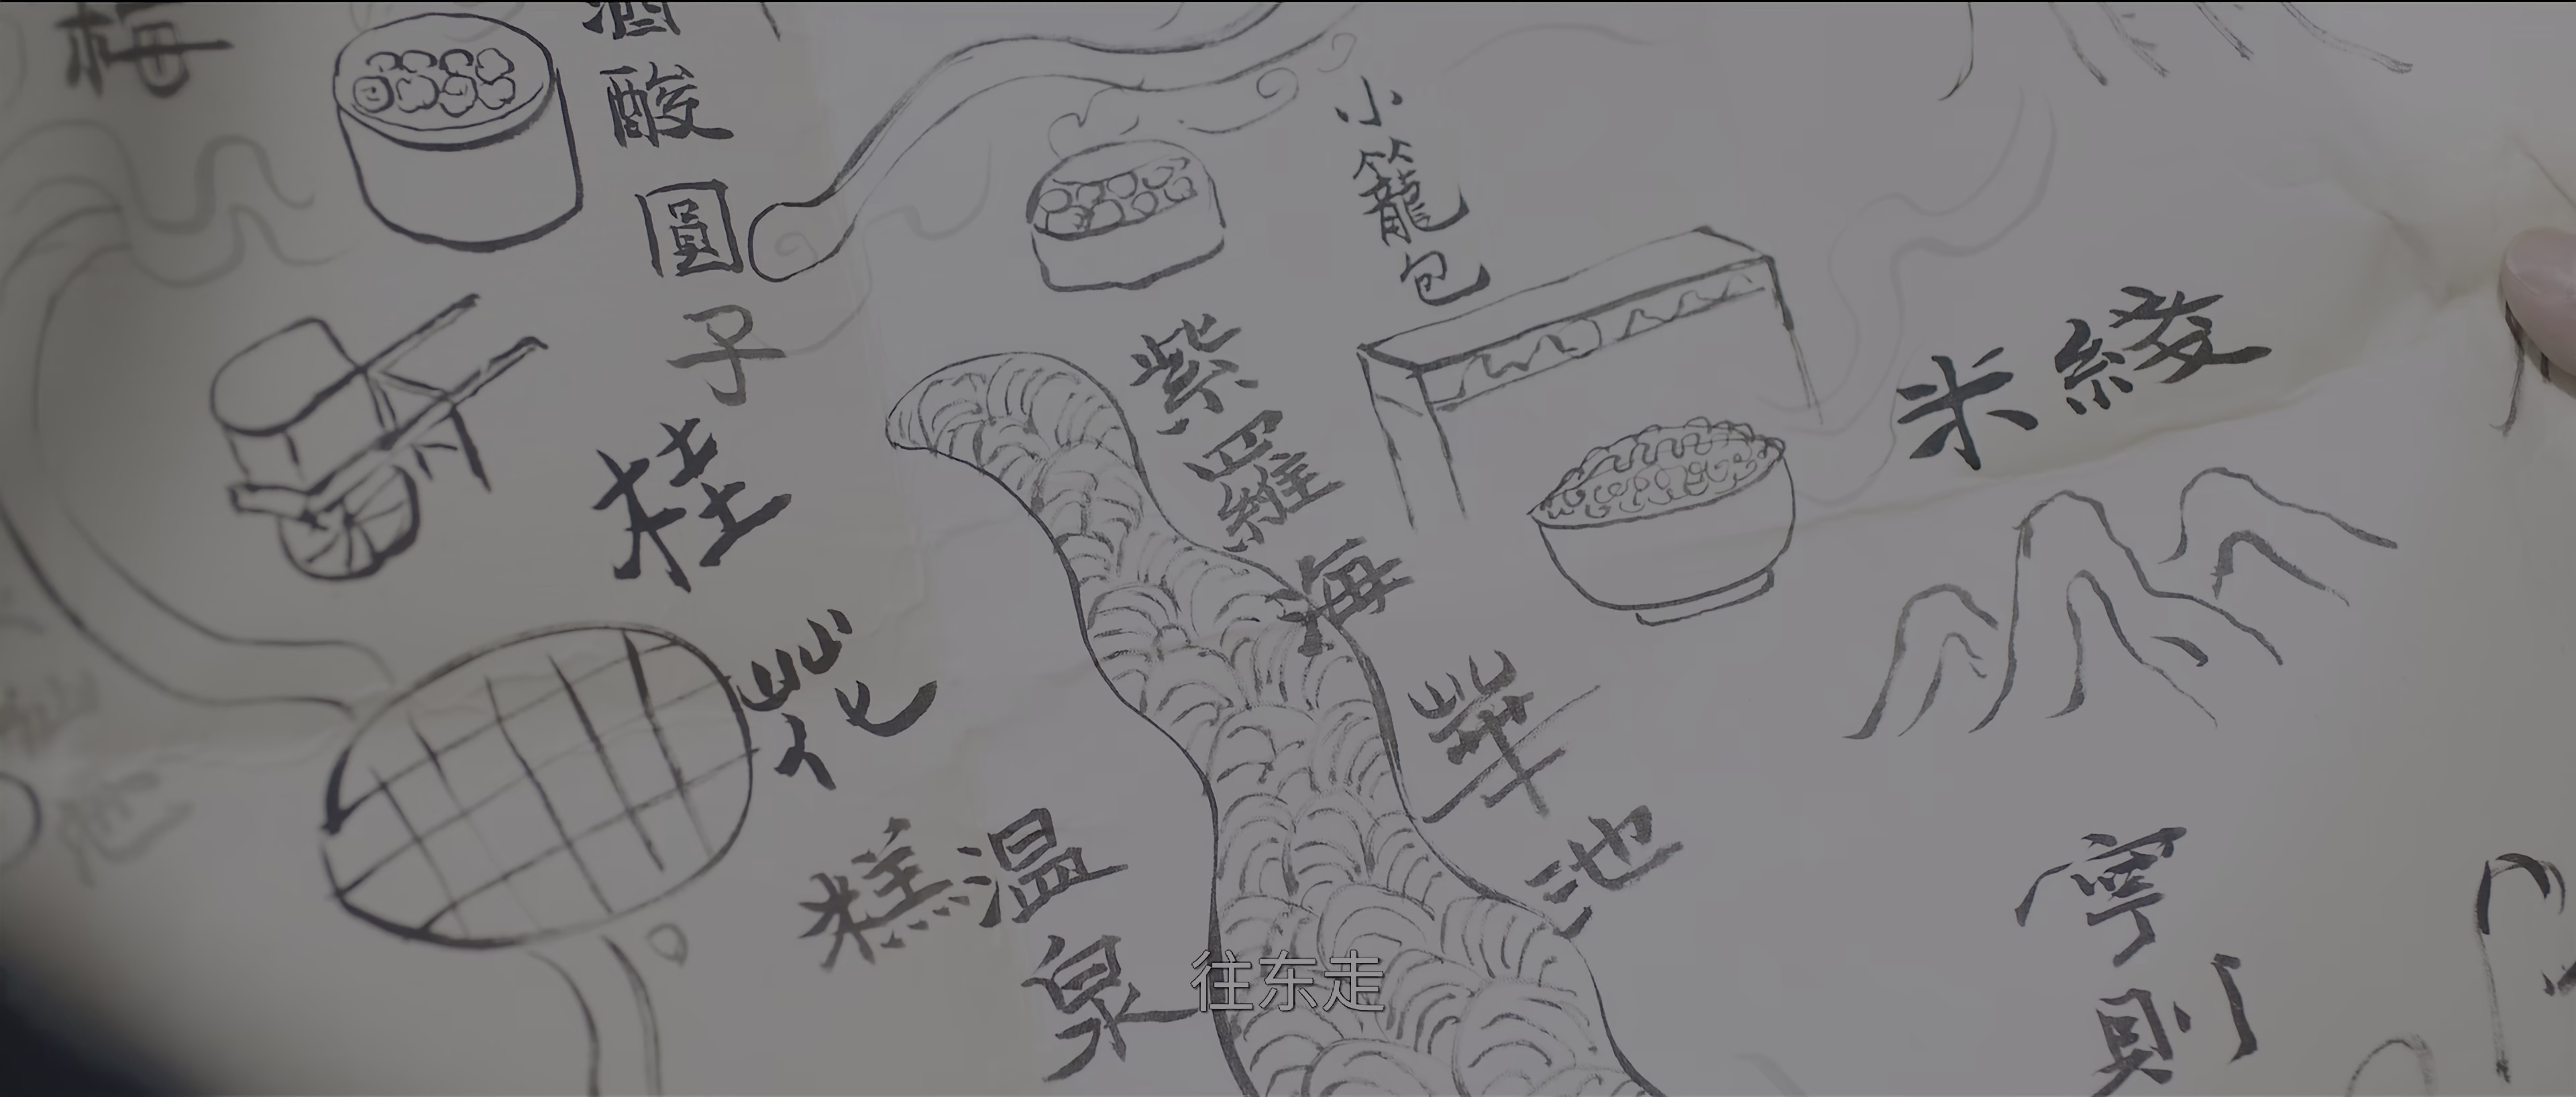 梅
酒酸圓子
小籠包
米綾
桂花糕
紫羅海
華池
温泉
寧則
往东走